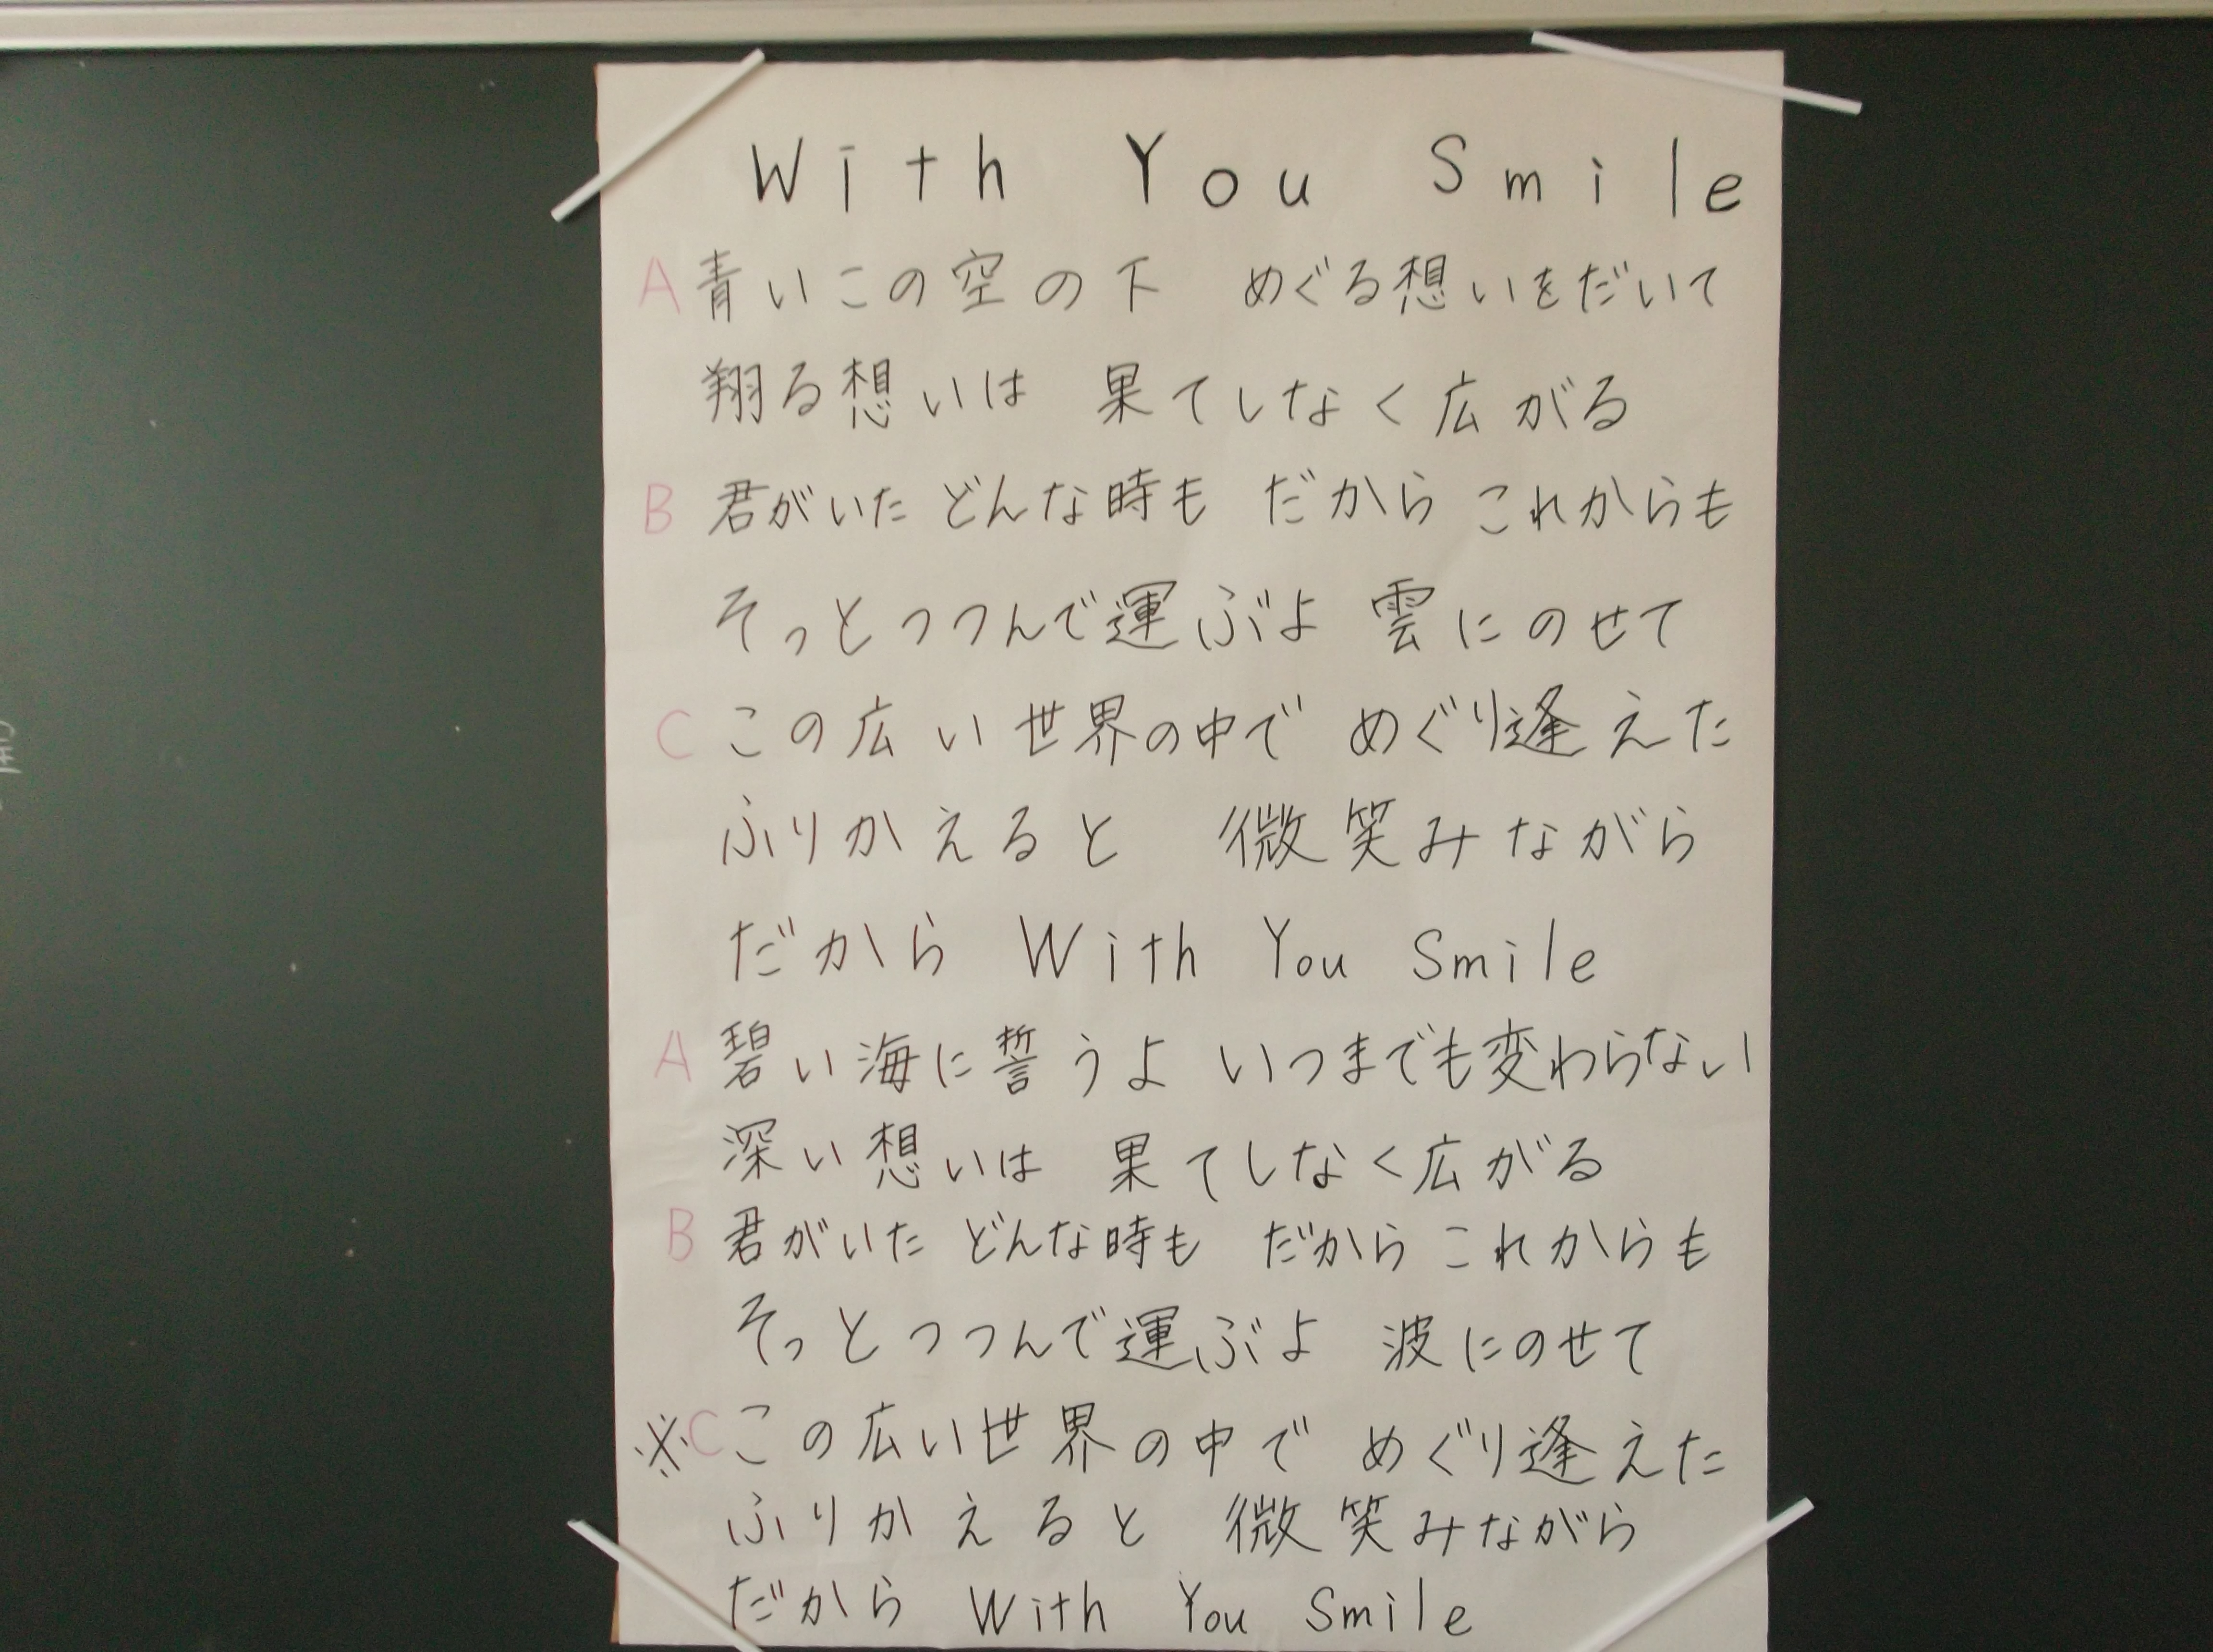 With You Smile
A 青いこの空の下 めぐる想いをだいて
翔る想いは 果てしなく広がる
B 君がいた どんな時も だから これからも
そっとつつんで運ぶよ 雲にのせて
C この広い世界の中で めぐり逢えた
ふりかえると 微笑みながら
だから With You Smile
A 碧い海に誓うよ いつまでも変わらない
深い想いは 果てしなく広がる
B 君がいた どんな時も だから これからも
そっとつつんで運ぶよ 波にのせて
※C この広い世界の中で めぐり逢えた
ふりかえると 微笑みながら
だから With You Smile